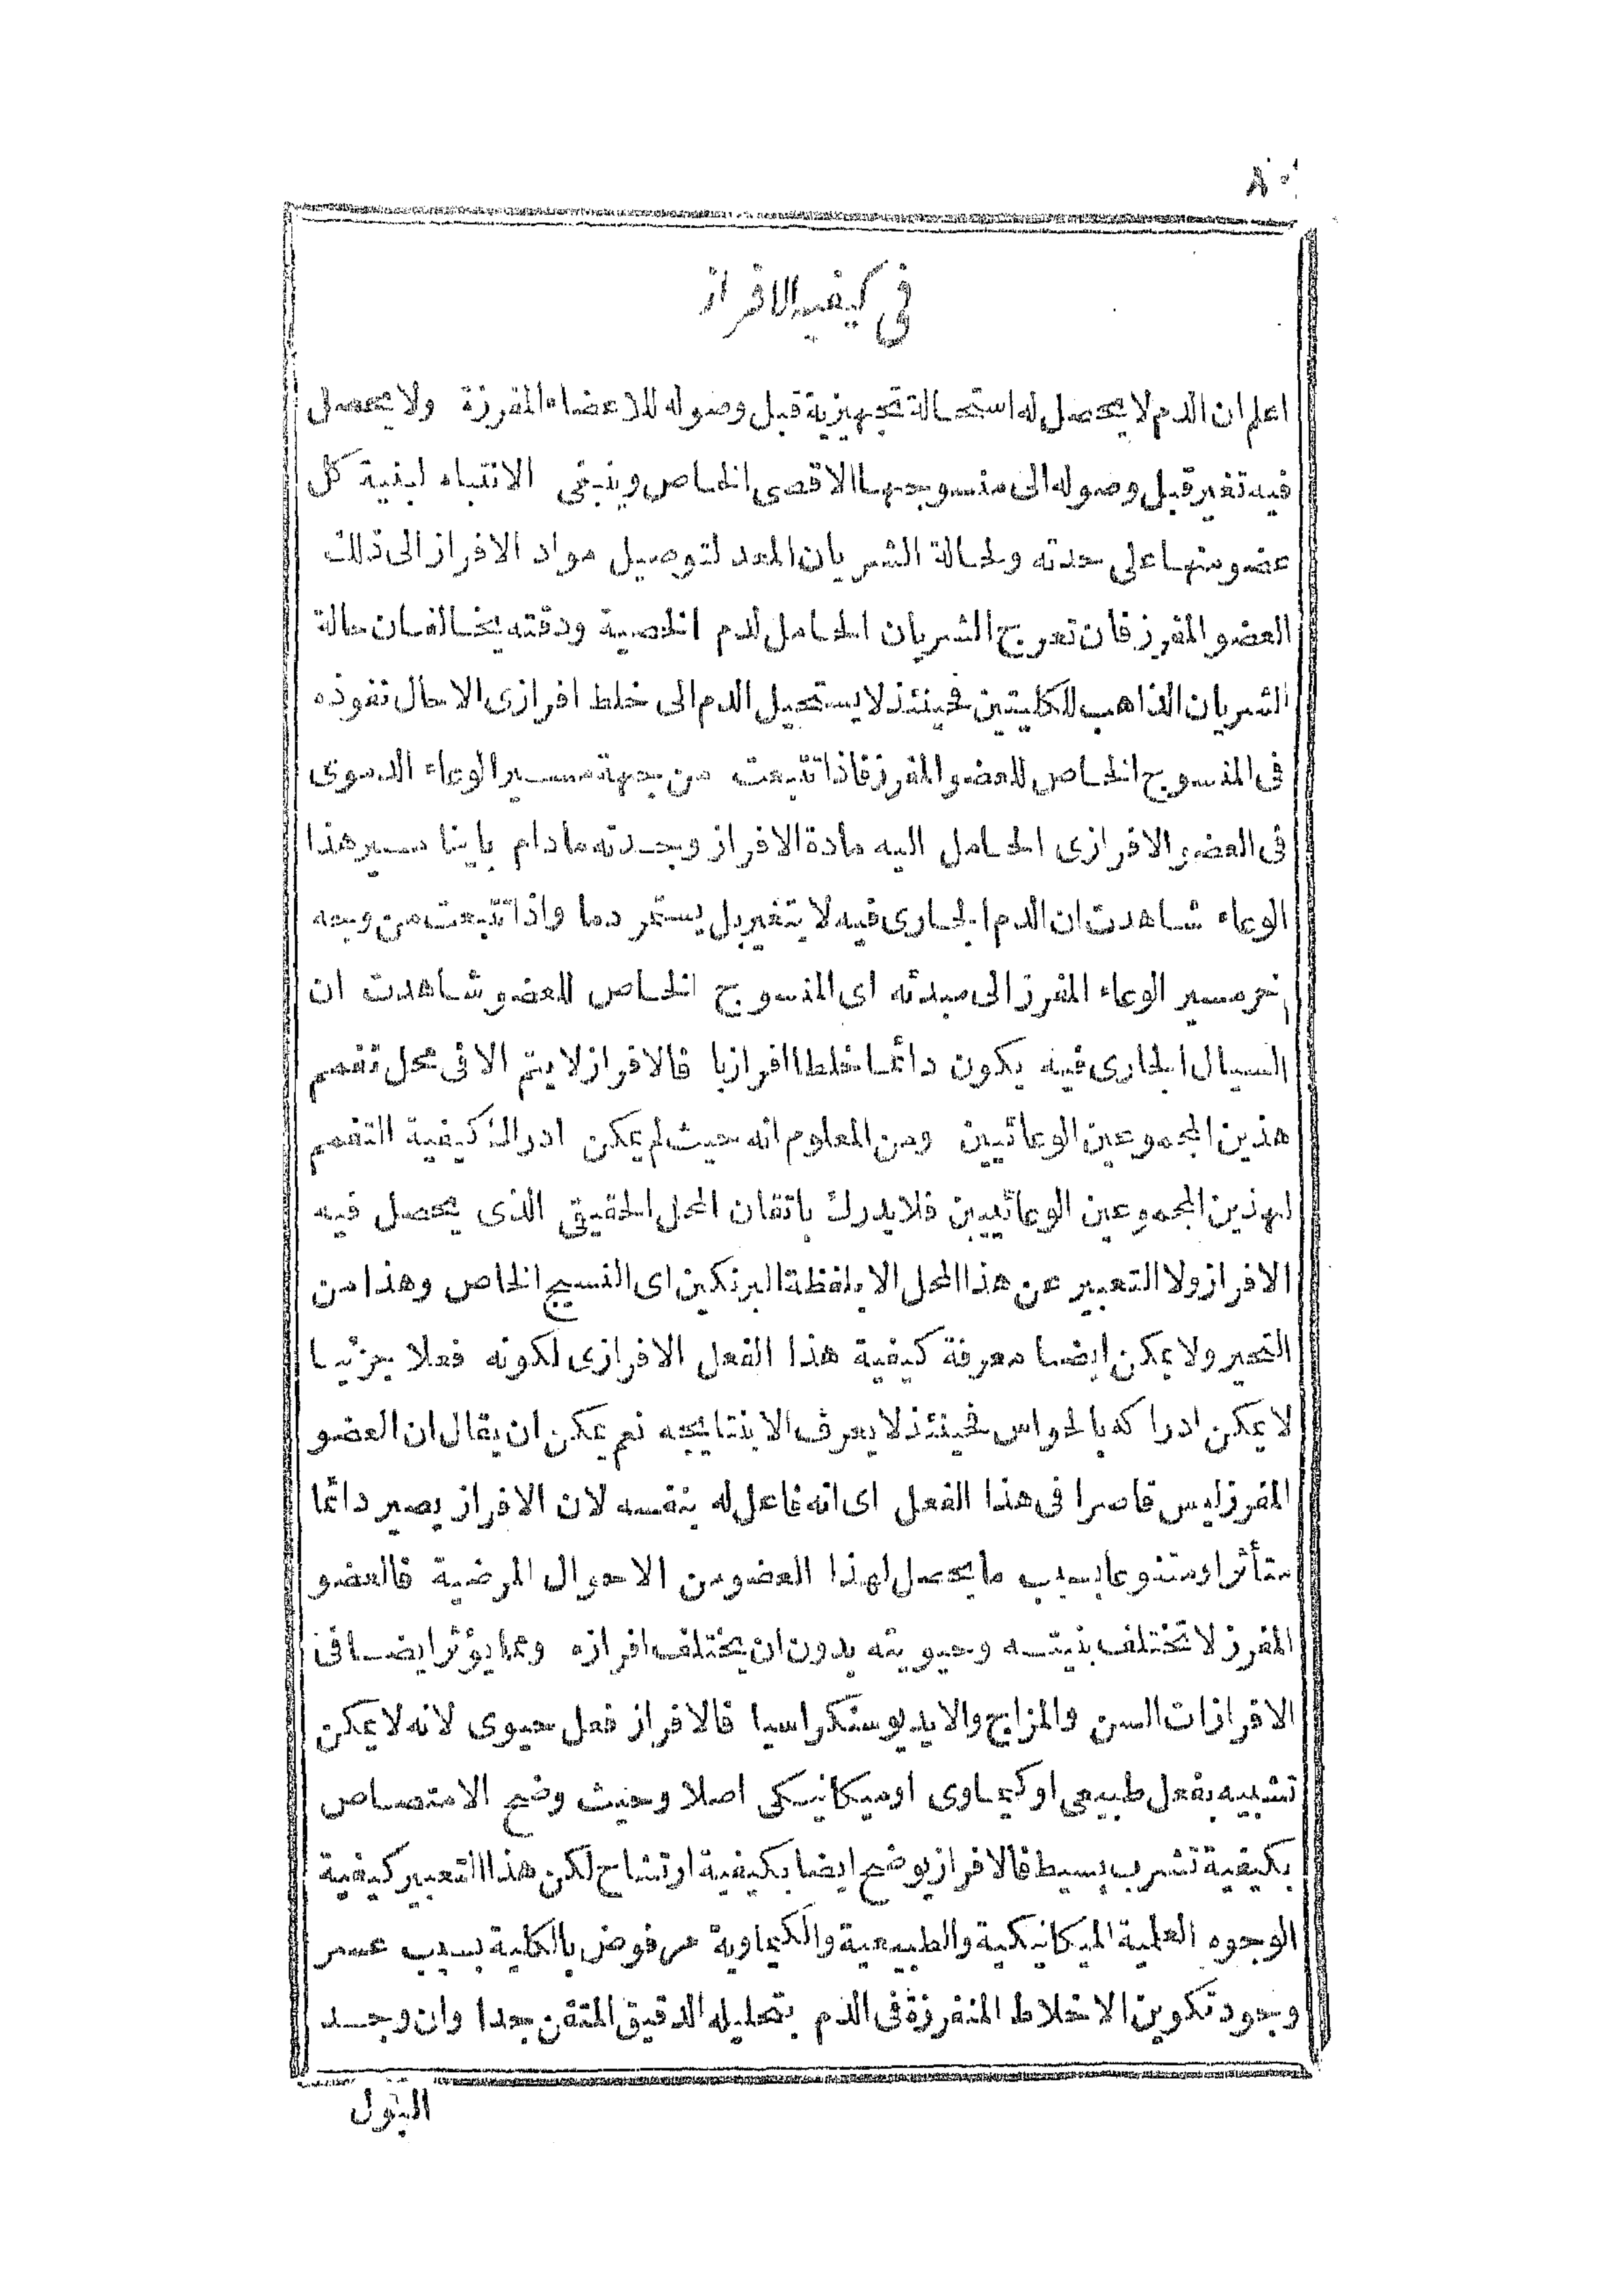 ٨٠
فى كيفية الافراز
اعلم ان الدم لا يحصل له استحالة تجهيزية قبل وصوله للاعضاء المفرزة ولا يحصل
فيه تغير قبل وصوله الى منسوجها الاقصى الخاص وينبغى الانتباه لبنية كل
عضو منها على حدته ولحالة الشريان المعد لتوصيل مواد الافراز الى ذلك
العضو المفرز فان تعرج الشريان الحامل لدم الخصية ودقته يخالفان حالة
الشريان الذاهب للكليتين فحينئذ لا يستحيل الدم الى خلط افرازى الا حال نفوذه
فى المنسوج الخاص للعضو المفرز فاذا تتبعت من جهة مسير الوعاء الدموى
فى العضو الافرازى الحامل اليه مادة الافراز وجدته مادام باينا مسير هذا
الوعاء شاهدت ان الدم الجارى فيه لا يتغير بل يستمر دما واذا تتبعت من وجه
اخر مسير الوعاء المفرز الى مبدئه اى المنسوج الخاص للعضو شاهدت ان
السيال الجارى فيه يكون دائما خلطا افرازيا فالافراز لا يتم الا فى محل تفمم
هذين المجموعين الوعائيين ومن المعلوم انه حيث لم يمكن ادراك كيفية التفمم
لهذين المجموعين الوعائيين فلا يدرك باتقان المحل الحقيقى الذى يحصل فيه
الافراز ولا التعبير عن هذا المحل الا بلفظة البرنكين اى النسيج الخاص وهذا من
التحير ولا يمكن ايضا معرفة كيفية هذا الفعل الافرازى لكونه فعلا جزئيا
لا يمكن ادراكه بالحواس فحينئذ لا يعرف الا بنتايجه نعم يمكن ان يقال ان العضو
المفرز ليس قاصرا فى هذا الفعل اى انه فاعل له بنفسه لان الافراز يصير دائما
متأثرا ومتنوعا بسبب ما يحصل لهذا العضو من الاحوال المرضية فالعضو
المفرز لا تختلف بنيتـه وحيويته بدون ان يختلف افرازه ومما يؤثر ايضا فى
الافرازات السن والمزاج والايديوسنكراسيا فالافراز فعل حيوى لانه لا يمكن
تشبيه بفعل طبيعى او كيماوى اوميكانيكى اصلا وحيث وضح الامتصاص
بكيفية تشرب بسيط فالافراز يوضح ايضا بكيفية ارتشاح لكن هذا التعبير كيفية
الوجوه العلمية الميكانيكية والطبيعية والكيماوية مرفوض بالكلية بسبب عسر
وجود تكوين الاخلاط المنفرزة فى الدم بتحليله الدقيق المتقن جدا وان وجد
البول